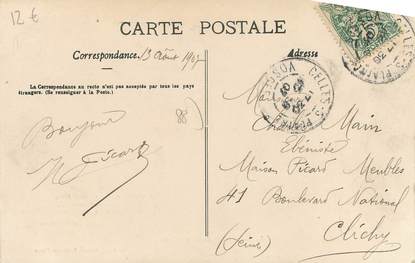 12 €
CARTE POSTALE
Correspondance 13 Août 1907
Adresse
La Correspondance au recto n'est pas acceptée par tous les pays
étrangers. (Se renseigner à la Poste.)
CELLES-S-PLAINE
VOSGES
88
Bonjour
Picard
Main
Ebéniste
Maison Picard Meubles
41 Boulevard National
Clichy
(Seine)